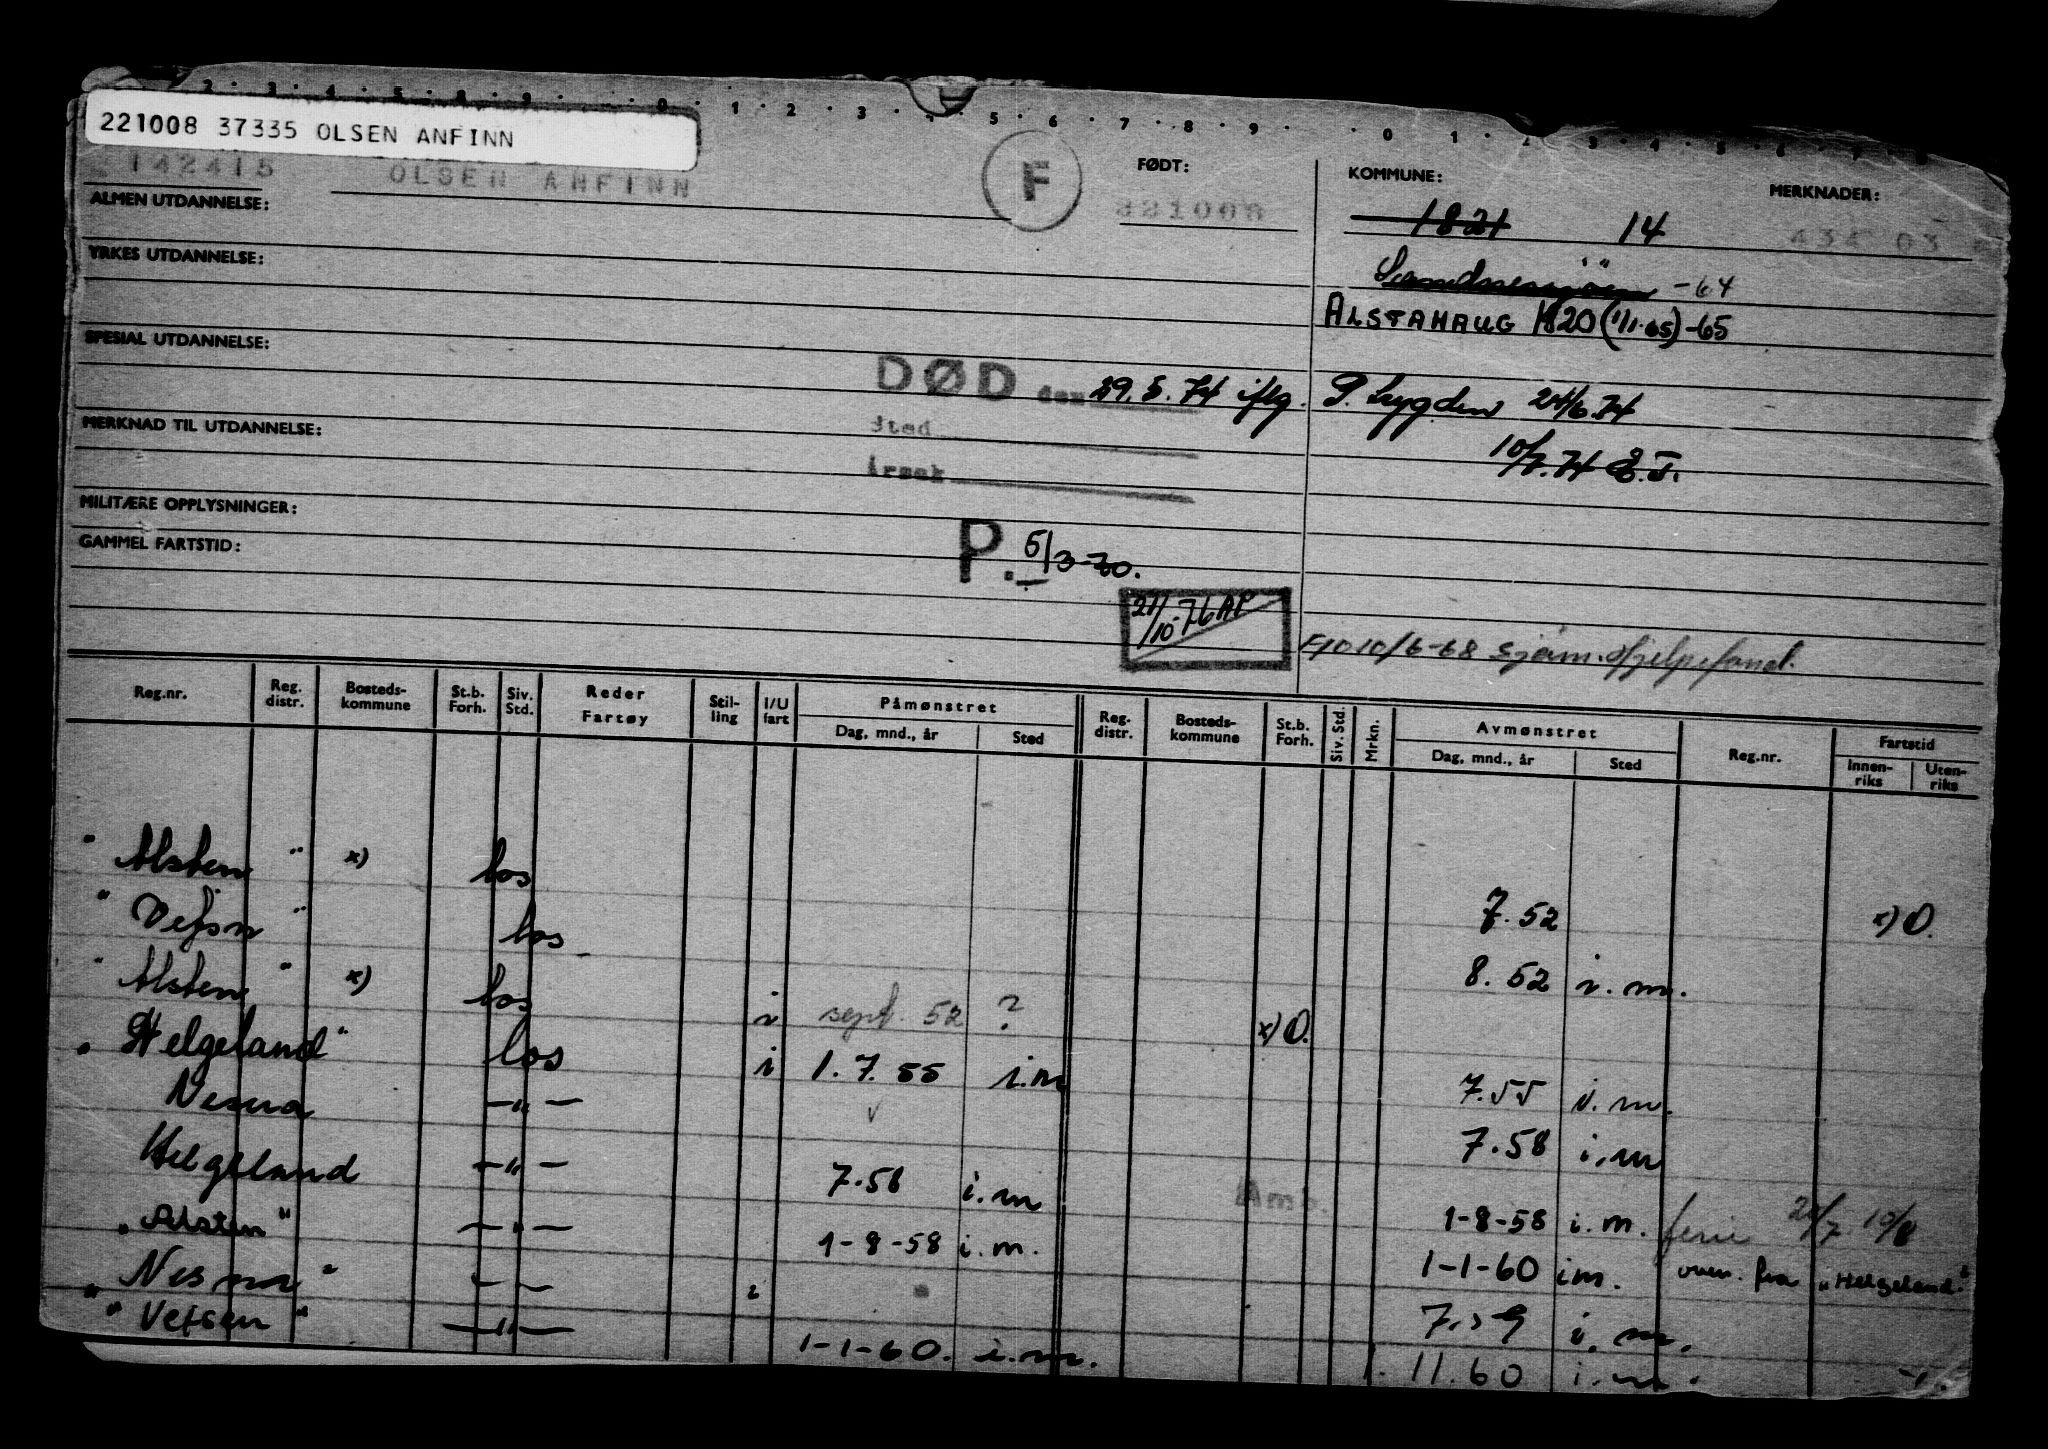 2 · 3 · 4 · 5 · 8 · 9 · · 0 · 1 · 2 · 3 · 4 · 5 · 6 · 7 · 8 · 9 · · 0 · 1 · 2 · 3 · 4 · 5 · 6 · 7 · 8
221008 37335 OLSEN ANFINN
142415 OLSEN ANFINN
F
FØDT:
221008
KOMMUNE:
MERKNADER:
1821 14
ALMEN UTDANNELSE:
YRKES UTDANNELSE:
Sandnessjøen -64
ALSTAHAUG 1820 (1/1-65) -65
SPESIAL UTDANNELSE:
DØD den 29.5.74 iflg. P. Lygden 24/6.74
Sted
10/7.74 E.T.
MERKNAD TIL UTDANNELSE:
Årsak
MILITÆRE OPPLYSNINGER:
GAMMEL FARTSTID:
P. 5/3-70.
21/10-76 AP
10/6-68 Sjøm. hjelpefond.
Reg.nr. Reg. distr. Bosteds-kommune St.b. Forh. Siv. Std. Reder Fartøy Stil-ling I/U fart Påmønstret Dag, mnd., år Sted Reg. distr. Bosteds-kommune St.b. Forh. Siv. Std. Mrkn. Avmønstret Dag, mnd., år Sted Reg.nr. Fartstid Innen-riks Uten-riks
"Alsten" x) los 7.52 x) O.
"Vefsn" los 8.52 i.m.
"Alsten" x) los i sept. 52 ? x) O.
"Helgeland" los i 1.7.55 i.m 7.55 i.m.
Nesna —"— 7.58 i.m
Helgeland —"— 7.58 i.m 1-8-58 i.m. ferie 10/8
"Alsten" —"— 1-8-58 i.m. 1-1-60 i.m. fra "Helgeland"
"Nesna" — — i 7.59 i.m.
"Vefsen" —"— 1-1-60. i.m. 1.11.60 i.m.